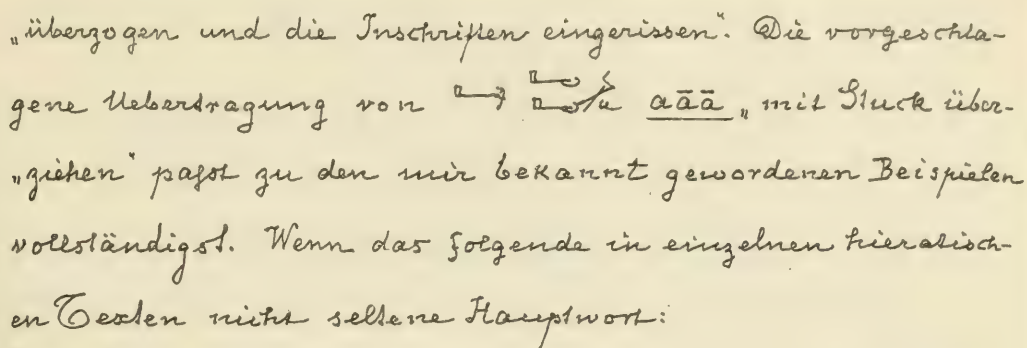 „überzogen und die Inschriften eingerissen“. Die vorgeschla-
gene Uebertragung von aāā „mit Stuck über-
„ziehen“ passt zu den mir bekannt gewordenen Beispielen
vollständigst. Wenn das folgende in einzelnen hieratisch-
en Texten nicht seltene Hauptwort: